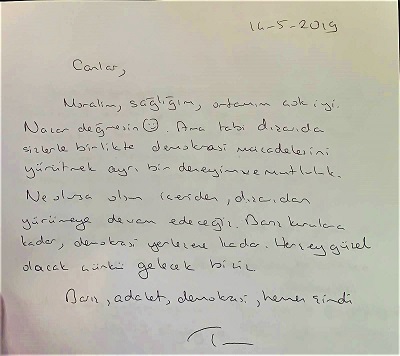 14-5-2019
Canlar,
Moralim, sağlığım, ortamım çok iyi.
Nazar değmesin ☺. Ama tabi dışarıda
sizlerle birlikte demokrasi mücadelesini
yürütmek ayrı bir deneyim ve mutluluk.
Ne olursa olsun içeriden, dışarıdan
yürümeye devam edeceğiz. Barış kurulana
kadar, demokrasi yerleşene kadar. Her şey güzel
olacak çünkü gelecek biziz
Barış, adalet, demokrasi, hemen şimdi